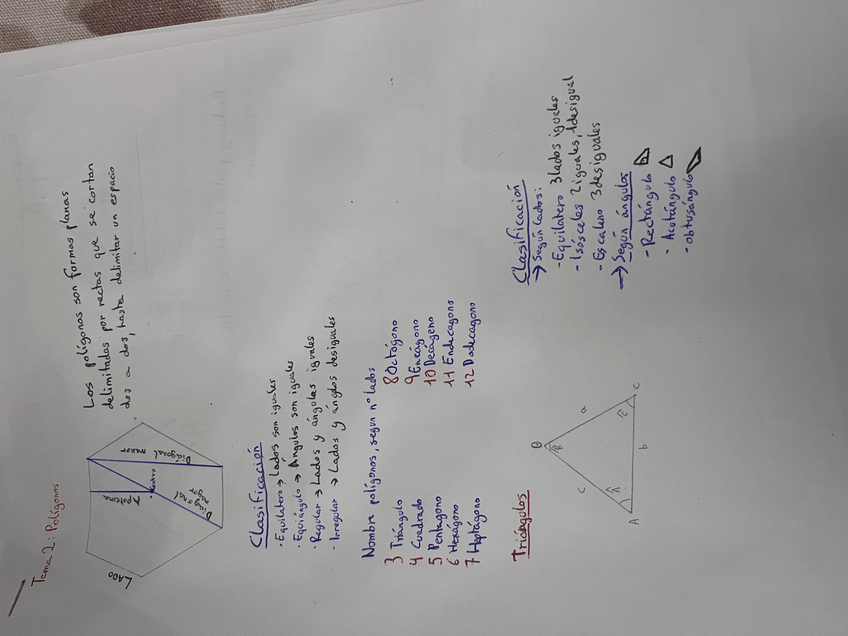 Tema 2: Polígonos
LADO
Apotema
Centro
Diagonal menor
Diagonal mayor
Los polígonos son formas planas
delimitadas por rectas que se cortan
dos a dos, hasta delimitar un espacio
Clasificación
· Equilatero → Lados son iguales
· Equiángulo → Ángulos son iguales
· Regular → Lados y ángulos iguales
· Irregular → Lados y ángulos desiguales
Nombre polígonos, según nº lados
3 Triángulo
4 Cuadrado
5 Pentagono
6 Hexágono
7 Heptágono
8 Octógono
9 Eneágono
10 Decágeno
11 Endecagono
12 Dodecagono
Triángulos
B
B̂
c
a
Â
Ĉ
A
b
C
Clasificación
→ Según lados:
- Equilatero 3 lados iguales
- Isósceles 2 iguales, 1 desigual
- Escaleno 3 desiguales
→ Según ángulos
- Rectángulo
· Acutángulo
- obtusángulo